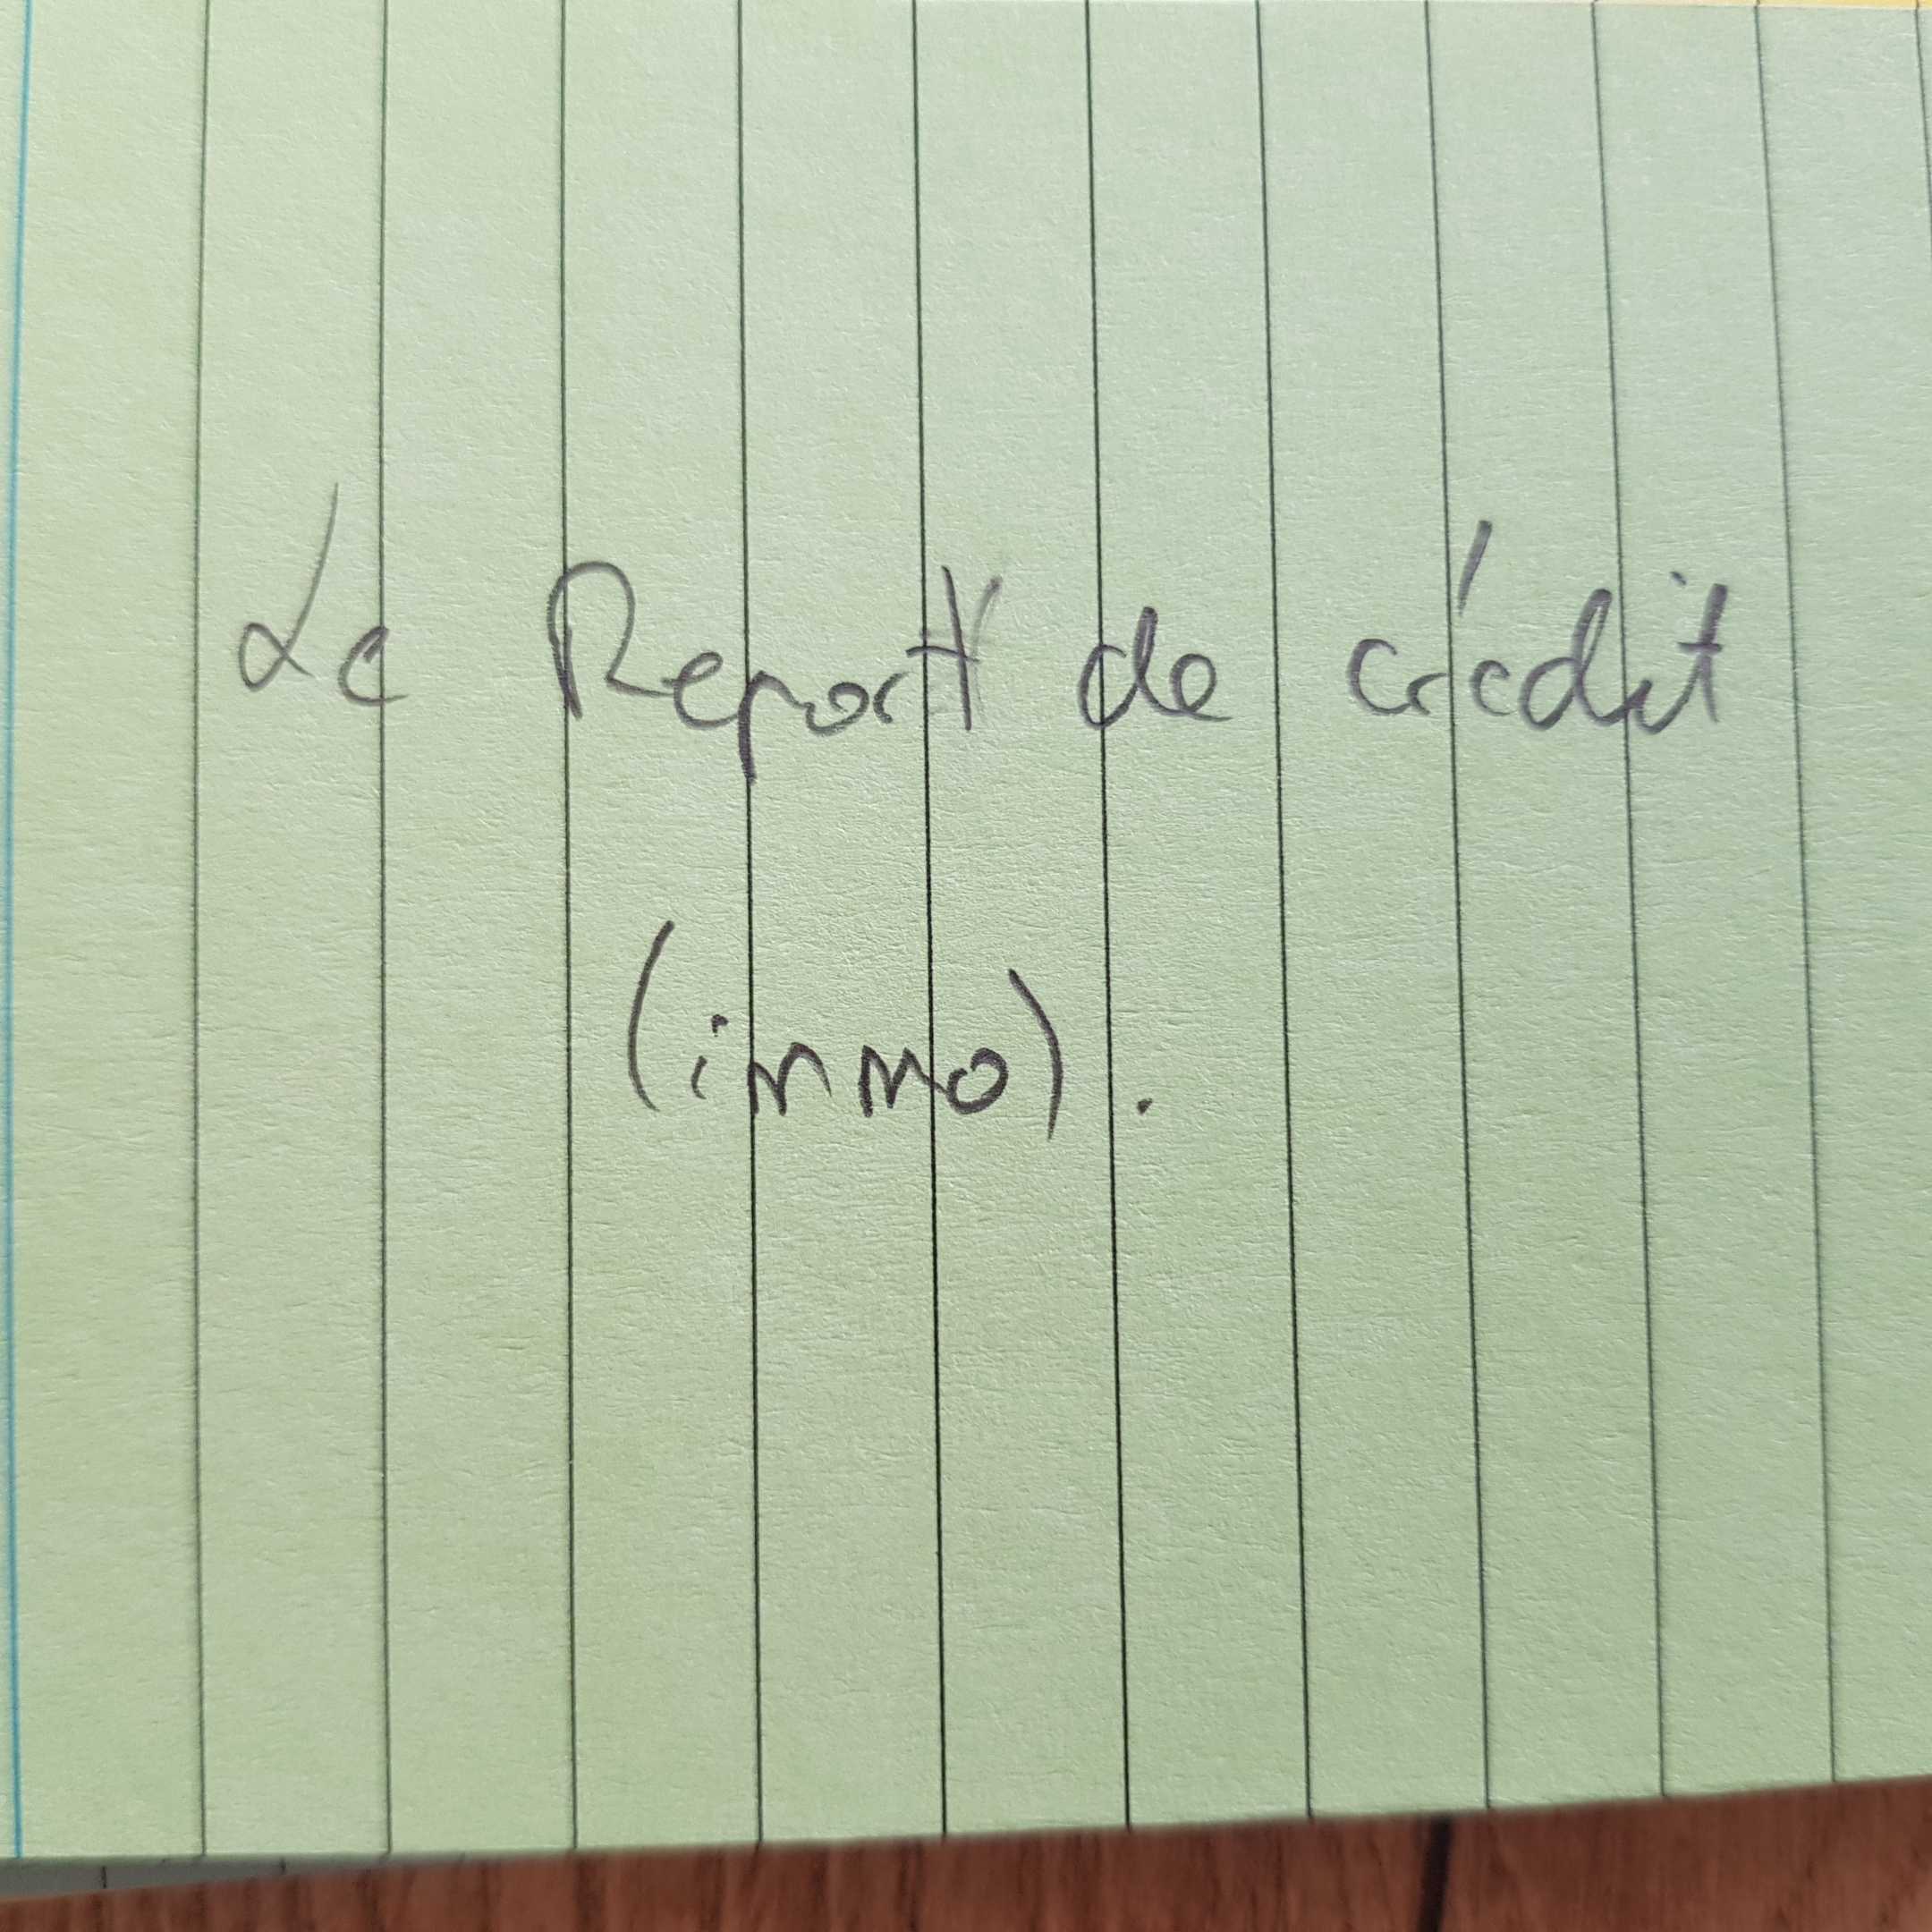 Le Report de crédit
(immo).